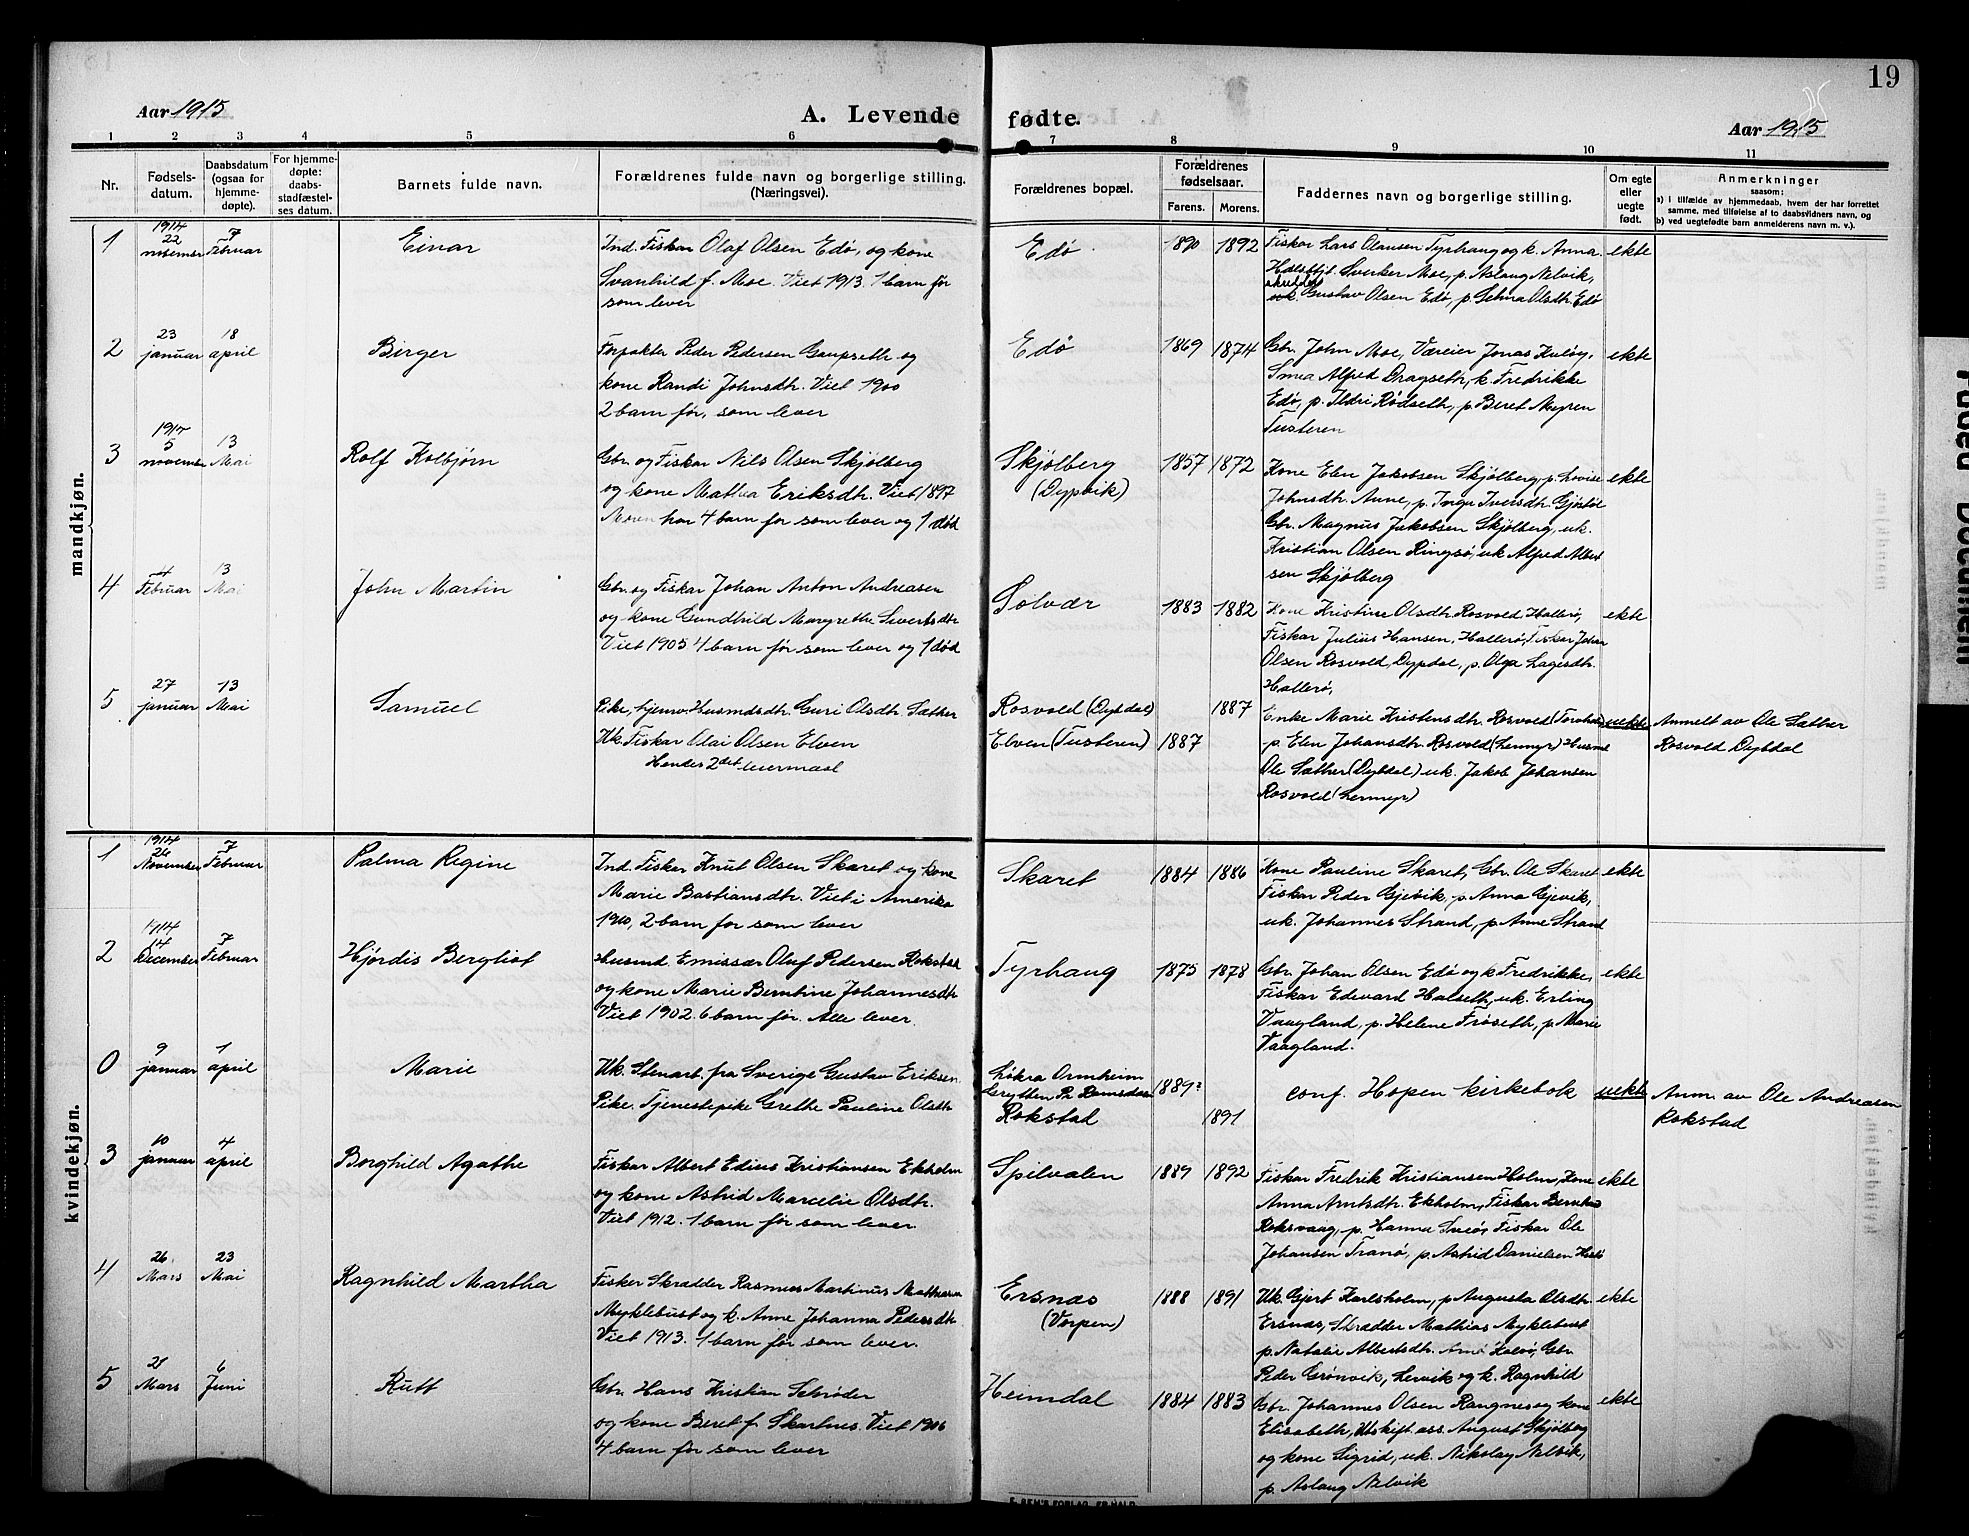 19
Aar 1915
A. Levende
fødte.
Aar 1915
1 2 3 4 5 6 7 8 9 10 11
Nr.
Fødsels-
datum.
Daabsdatum
(ogsaa for
hjemme-
døpte).
For hjemme-
døpte:
daabs-
stadfæstel-
ses datum.
Barnets fulde navn.
Forældrenes fulde navn og borgerlige stilling.
(Næringsvei).
Forældrenes bopæl.
Forældrenes
fødselsaar.
Farens. Morens.
Faddernes navn og borgerlige stilling.
Om egte
eller
uegte
født.
Anmerkninger
saasom:
a) i tilfælde av hjemmedaab, hvem der har forrettet
samme, med tilføielse af to daabsvidners navn, og
b) ved uegtefødte barn anmelderens navn m. v.).
mandkjøn.
1
1914
22
7
Februar
Einar
Ind. Fiskar Olaf Olsen Edø, og kone
Svanhild f. Moe. Viet 1913. 1 barn før
som lever
Edø
1890 1892
Fiskar Lars Olausen Tyrhaug og k. Anna
Sverker Moe, p. Aslaug Nelvik,
Gustav Olsen Edø, p. Selma Olsdtr. Edø
ekte
2
23
januar
18
april
Birger
Forpakter Peder Pedersen Gaupseth og
kone Randi Johnsdtr. Viet 1900
2 barn før, som lever
Edø
1869 1874
Gbr. John Moe, Væreier Jonas Kuløy,
Smea Alfred Dragseth, k. Fredrikke
Edø, p. Ildri Rødseth, p. Beret Myren
Tusteren
ekte
3
5
november
13
Mai
Rolf Kolbjørn
Gbr. og Fiskar Nils Olsen Skjølberg
og kone Mathea Eriksdtr. Viet 1897
Moren har 4 barn før som lever og 1 død
Skjølberg
(Dypvik)
1857 1872
Kone Elen Jakobsen Skjølberg, p. Lovise
Johnsdtr. Anne, p. Inga Iversdtr. Gjøstøl
Gbr. Magnus Jakobsen Skjølberg, uk.
Kristian Olsen Ringsø, uk Alfred Albert
sen Skjølberg
ekte
4
4
Februar
13
Mai
John Martin
Gbr. og Fiskar Johan Anton Andreasen
og kone Gundhild Margrethe Sivertsdtr
Viet 1905 4 barn før som lever og 1 død
Solvær
1883 1882
Kone Kristine Olsdtr. Rosvold, Hallerø,
Fiskar Julius Hansen, Hallerø, Fiskar Johan
Olsen Rosvold, Dypdal, p. Olga Lagesdtr.
Hallerø,
ekte
5
27
januar
13
Mai
Samuel
Pike, hjemv. Husmdsdtr. Guri Olsdtr. Sæther
Uk. Fiskar Olai Olsen Elven
Hendes 2det leiermaal
Rosvold (Dypdal)
Elven (Tusteren)
1887
1887
Enke Marie Kristensdtr. Rosvold
p. Elen Johansdtr. Rosvold (Lermyr) Husmd
Ole Sæther (Dypdal) uk. Jakob Johansen
Rosvold (Lermyr)
uekte
Anmelt av Ole Sæther
Rosvold Dypdal
kvindekjøn.
1
1914
26
November
7
Februar
Palma Regine
Ind. Fiskar Knut Olsen Skaret og kone
Marie Bastiansdtr. Viet i Amerika
1910, 2 barn før som lever
Skaret
1884 1886
Kone Pauline Skaret, Gbr. Ole Skaret
Fiskar Peder Gjevik, p. Anna Gjevik,
uk. Johannes Strand, p. Anne Strand
ekte
2
1914
14
December
7
Februar
Hjørdis Bergliot
Husmd. Emissær Oluf Pedersen Rokstad
og kone Marie Berntine Johannesdtr
Viet 1902. 6 barn før. Alle lever.
Tyrhaug
1875 1878
Gbr. Johan Olsen Edø og k Fredrikke,
Fiskar Edvard Halseth, uk. Erling
Vaagland, p. Helene Frøseth, p. Marie
Vaagland.
ekte
0
9
januar
1
april
Marie
Uk. Stenarb. fra Sverige Gustav Eriksen
Pike. Tjenestepike Grethe Pauline Olsdtr
Løkra Ormheim
Grytten Pr. Romsdalen
Rokstad
1889?
1891
conf. Hopen kirkebok
uekte
Anm. av Ole Andreasen
Rokstad
3
10
januar
4
april
Borghild Agathe
Fiskar Albert Edius Kristiansen Ekholm
og kone Astrid Marcelie Olsdtr.
Viet 1912. 1 barn før som lever.
Spilvalen
1889 1892
Fiskar Fredrik Kristiansen Holm, Kone
Anna Arntsdtr. Ekholm, Fiskar Bernhard
Roksvaag, p. Hanna Sveø, Fiskar Ole
Johansen Tranø, p. Astrid Danielsen
ekte
4
26
Mars
23
Mai
Ragnhild Martha
Fisker Skrædder Rasmus Martinus Mathiasen
Myklebust og k. Anne Johanna Pedersdtr
Viet 1913. 1 barn før som lever.
Ersnæs
(Vorpen)
1888 1891
Uk. Gjert Karlsholm, p. Augusta Olsdtr.
Ersnæs, Skrædder Mathias Myklebust
p. Natalie Albertsdtr. Arnø Kalvø, Gbr.
Peder Grønvik, Lervik og k. Ragnhild
ekte
5
21
Mars
6
Juni
Rutt
Gbr. Hans Kristian Schrøder
og kone Beret f. Skartnes. Viet 1906
4 barn før som lever
Heimdal
1884 1883
Gbr. Johannes Olsen Rangnes og kone
Elisabeth, Utskift. ass. August Skjølberg
og kone Sigrid, uk. Nikolay Nelvik,
p. Aslaug Nelvik
ekte